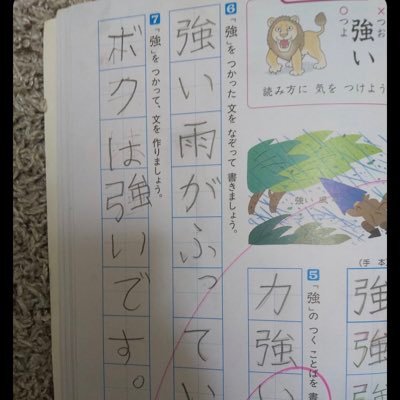 ×つお
○つよ
強い
読み方に 気を つけよう
強い 風
(手 本
強強
5 「強」の つく ことばを 書
力強い
6 「強」を つかった 文を なぞって 書きましょう。
強い雨がふってい
7 「強」を つかって、文を 作りましょう。
ボクは強いです。